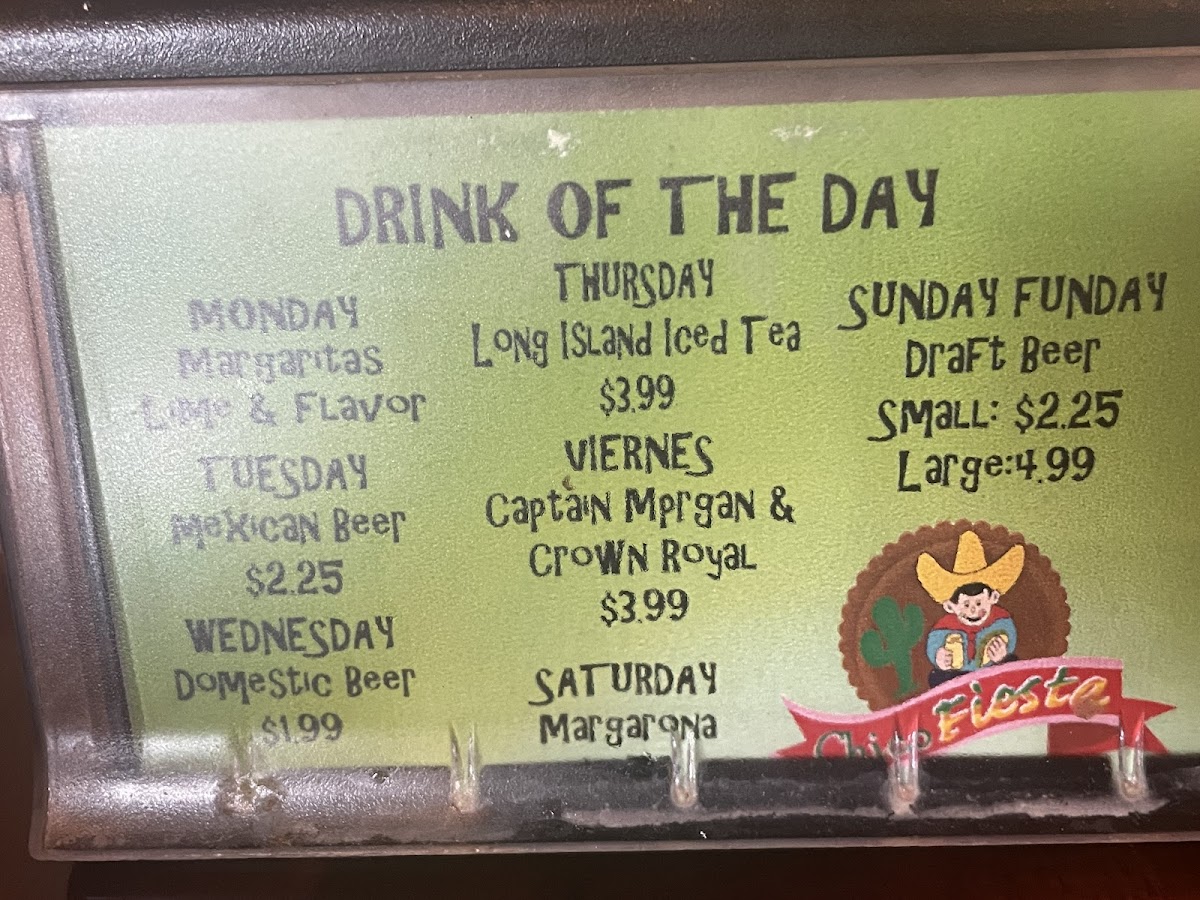 DRINK OF THE DAY
MONDAY
Margaritas
Lime & Flavor
TUESDAY
Mexican Beer
$2.25
WEDNESDAY
Domestic Beer
$1.99
THURSDAY
Long Island Iced Tea
$3.99
VIERNES
Captain Mprgan &
Crown Royal
$3.99
SATURDAY
Margarona
SUNDAY FUNDAY
Draft Beer
Small: $2.25
Large:4.99
Chico Fiesta